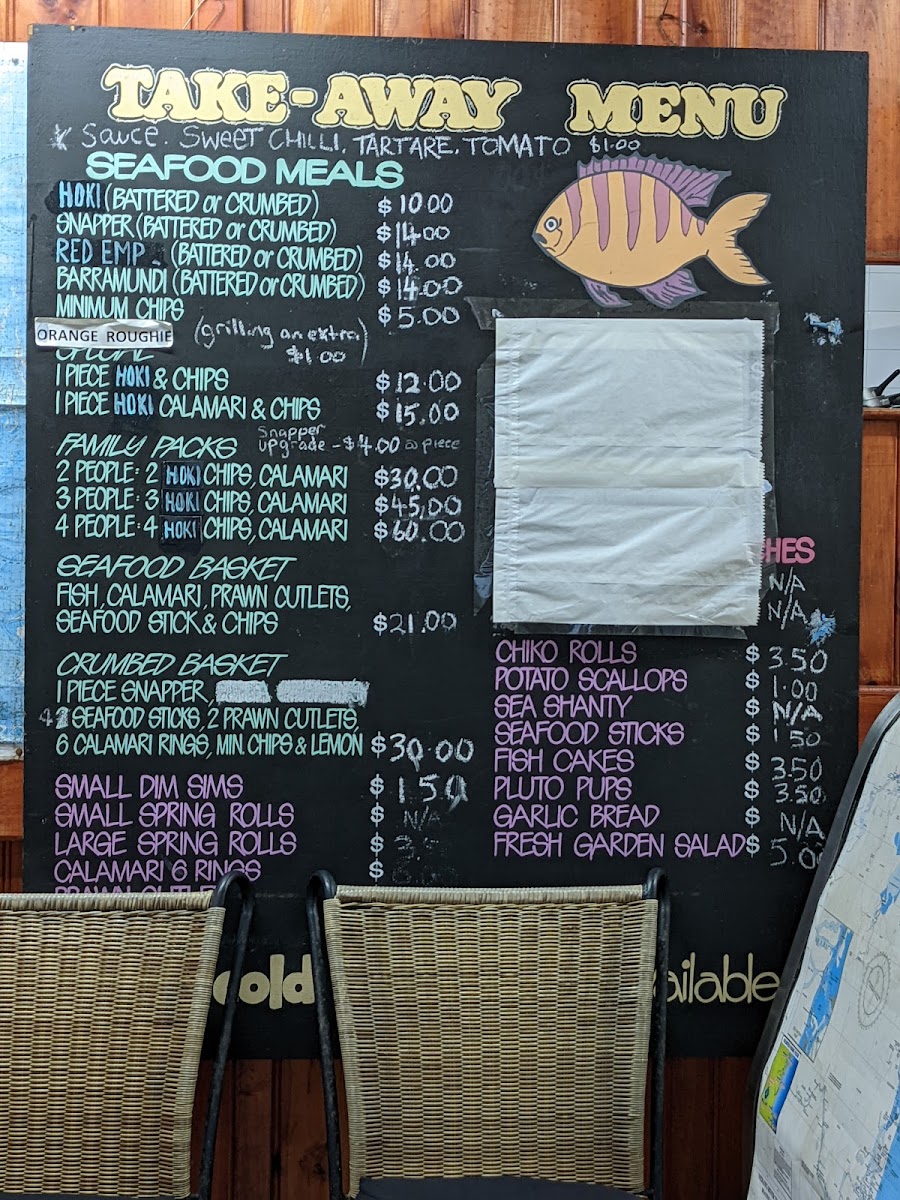 TAKE-AWAY MENU
* SAUCE. SWEET CHILLI, TARTARE, TOMATO $1.00
SEAFOOD MEALS
HOKI (BATTERED or CRUMBED) $10.00
SNAPPER (BATTERED or CRUMBED) $14.00
RED EMP (BATTERED or CRUMBED) $14.00
BARRAMUNDI (BATTERED or CRUMBED) $14.00
MINIMUM CHIPS $5.00
ORANGE ROUGHIE (grilling an extra $1.00)
SPECIAL
1 PIECE HOKI & CHIPS $12.00
1 PIECE HOKI CALAMARI & CHIPS $15.00
FAMILY PACKS Snapper upgrade - $4.00 a piece
2 PEOPLE: 2 HOKI CHIPS, CALAMARI $30.00
3 PEOPLE: 3 HOKI CHIPS, CALAMARI $45.00
4 PEOPLE: 4 HOKI CHIPS, CALAMARI $60.00
SEAFOOD BASKET
FISH, CALAMARI, PRAWN CUTLETS,
SEAFOOD STICK & CHIPS $21.00
CRUMBED BASKET
1 PIECE SNAPPER,
4 SEAFOOD STICKS, 2 PRAWN CUTLETS,
6 CALAMARI RINGS, MIN. CHIPS & LEMON $30.00
SMALL DIM SIMS $1.50
SMALL SPRING ROLLS $ N/A
LARGE SPRING ROLLS $
CALAMARI 6 RINGS $
PRAWN CUTLE
HES
N/A
N/A
CHIKO ROLLS $3.50
POTATO SCALLOPS $1.00
SEA SHANTY $N/A
SEAFOOD STICKS $1.50
FISH CAKES $3.50
PLUTO PUPS $3.50
GARLIC BREAD $N/A
FRESH GARDEN SALAD $5.00
cold
ailable